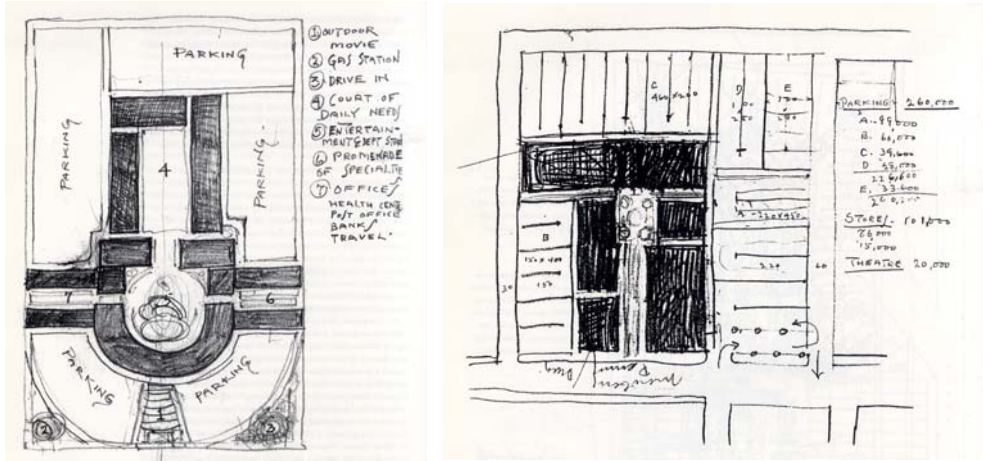 PARKING
PARKING
PARKING
4
7
6
PARKING
PARKING
1
2
3
① OUTDOOR
MOVIE
② GAS STATION
③ DRIVE IN
④ COURT OF
DAILY NEEDS
⑤ ENTERTAIN-
MENT & DEPT STORE
⑥ PROMENADE
OF SPECIALTIE
⑦ OFFICES
HEALTH CENT
POST OFFICE
BANKS
TRAVEL.
C
D
E
A - 220X450
B
150 X 400
150
30
220
60
PARKING 260,000
A. 99,000
B. 60,000
C.
D
E. 33.600
STORES. 101,000
26,000
15,000
THEATRE 20,000